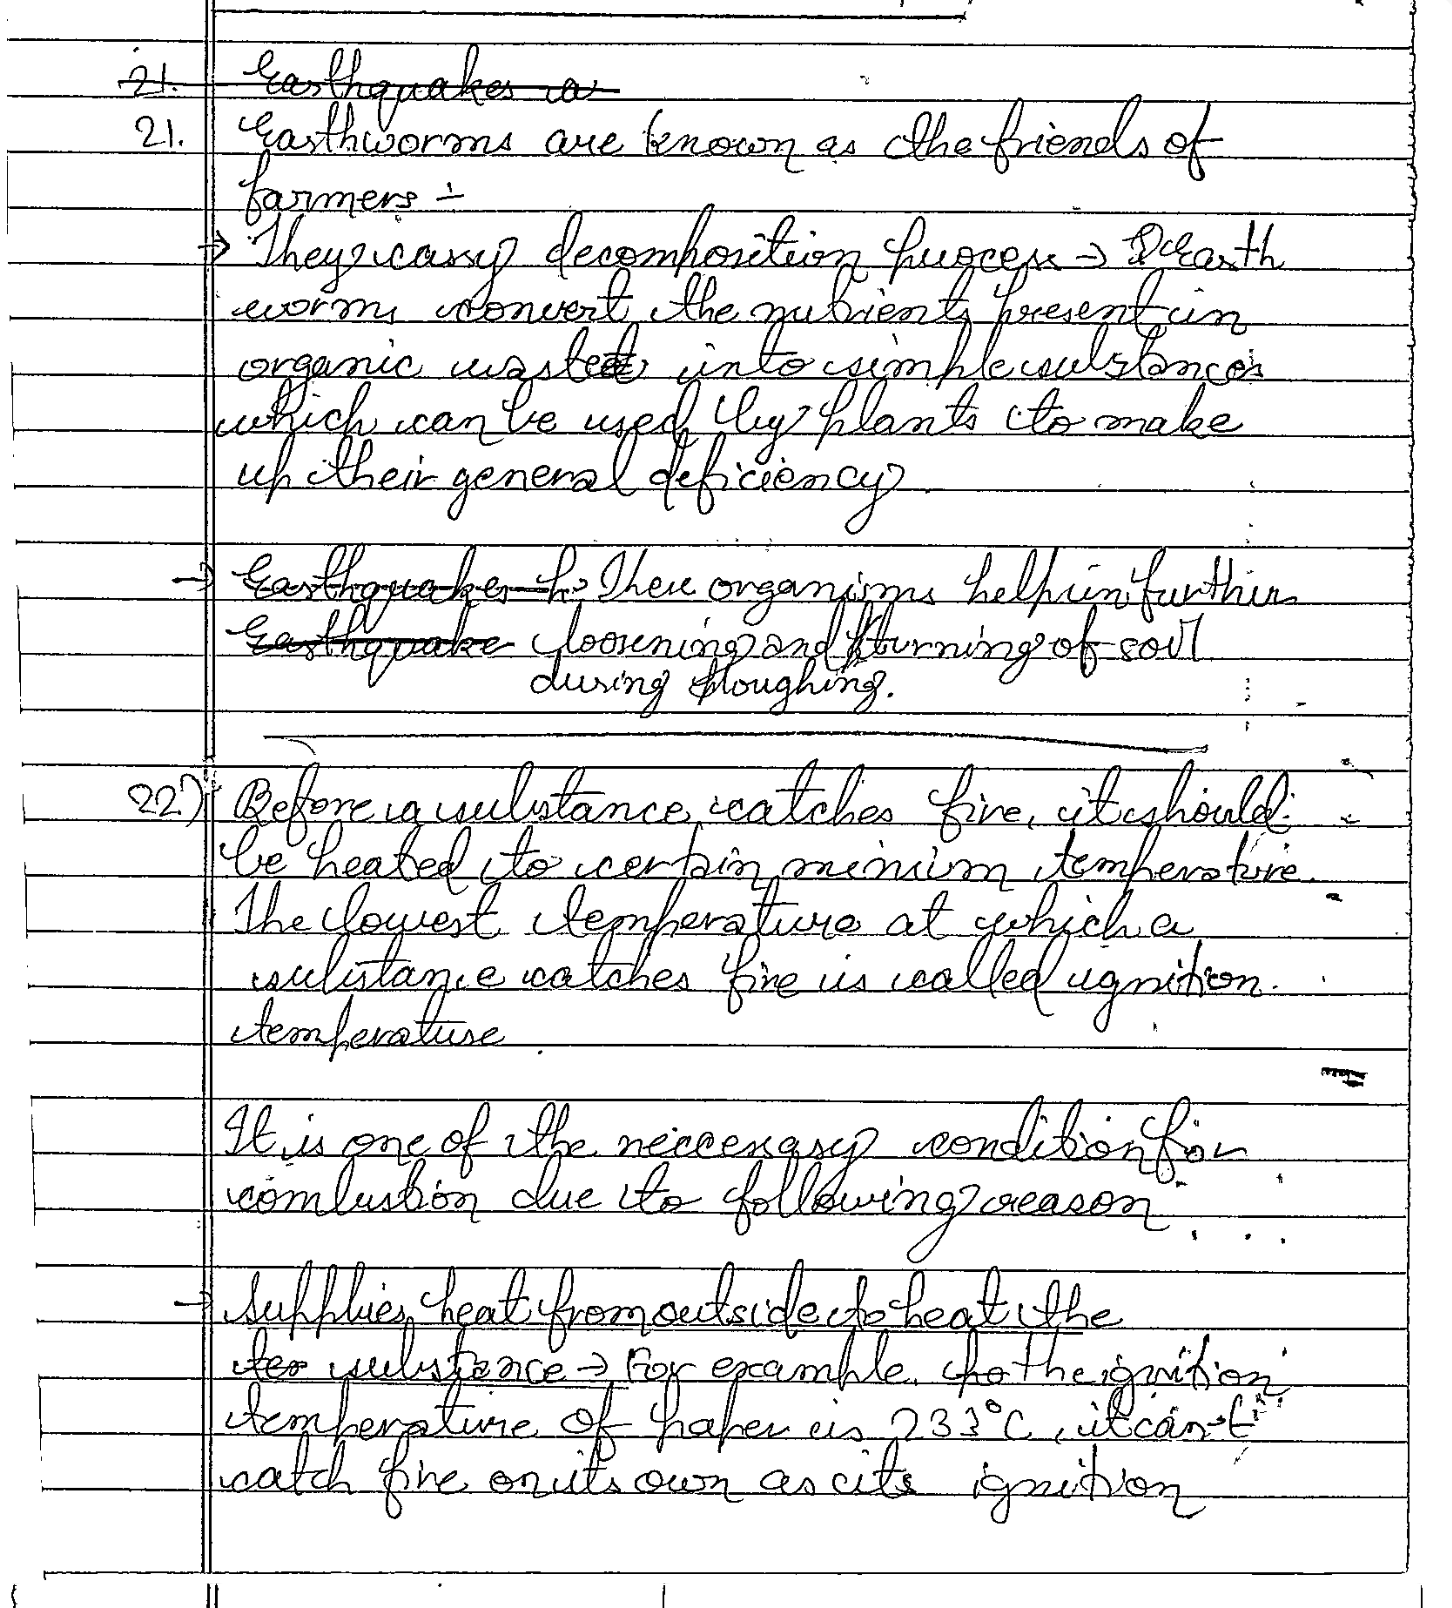 21. Earthquakes a
21. Earthworms are known as the friends of
farmers :-
→ They carry decomposition process → Earth
worms convert the nutrients present in
organic wastes into simple substances
which can be used by plants to make
up their general deficiency.
→ Earthquakes h These organisms help in further
Earthquake loosening and turning of soil
during ploughing.
22) Before a substance catches fire, it should
be heated to certain minium temperature.
The lowest temperature at which a
substance catches fire is called ignition
temperature.
It is one of the neccessary condition for
combustion due to following reason
→ Supplies heat from outside to heat the
tes substance → For example, the ignition
temperature of paper is 233°C, it can't
catch fire on its own as its ignition